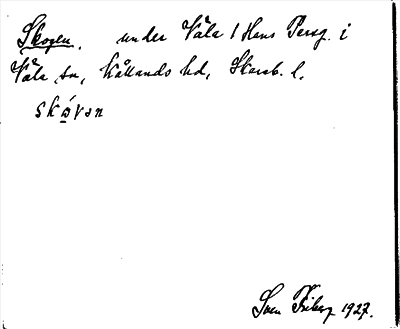 Skogen. under Väla 1 Hans Persg. i
Väla sn, Kållands hd, Skarab. l.
skó̲vən
Sven Friberg 1927.